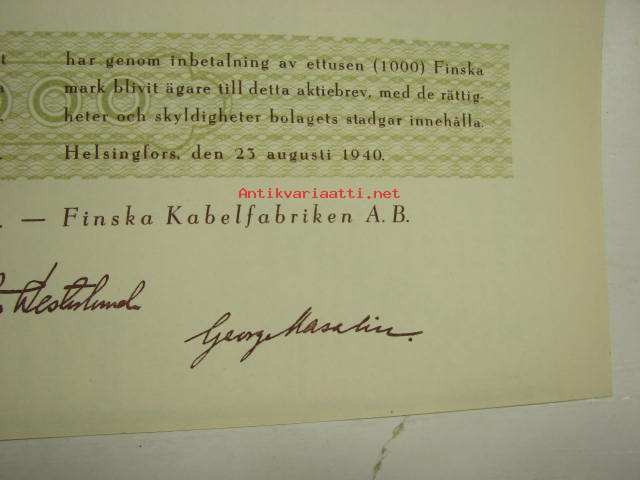 t har genom inbetalning av ettusen (1000) Finska
a mark blivit ägare till detta aktiebrev, med de rättig-
. heter och skyldigheter bolagets stadgar innehålla.
. Helsingfors, den 23 augusti 1940.
Antikvariaatti.net
. — Finska Kabelfabriken A. B.
Westerlund
George Masalin.